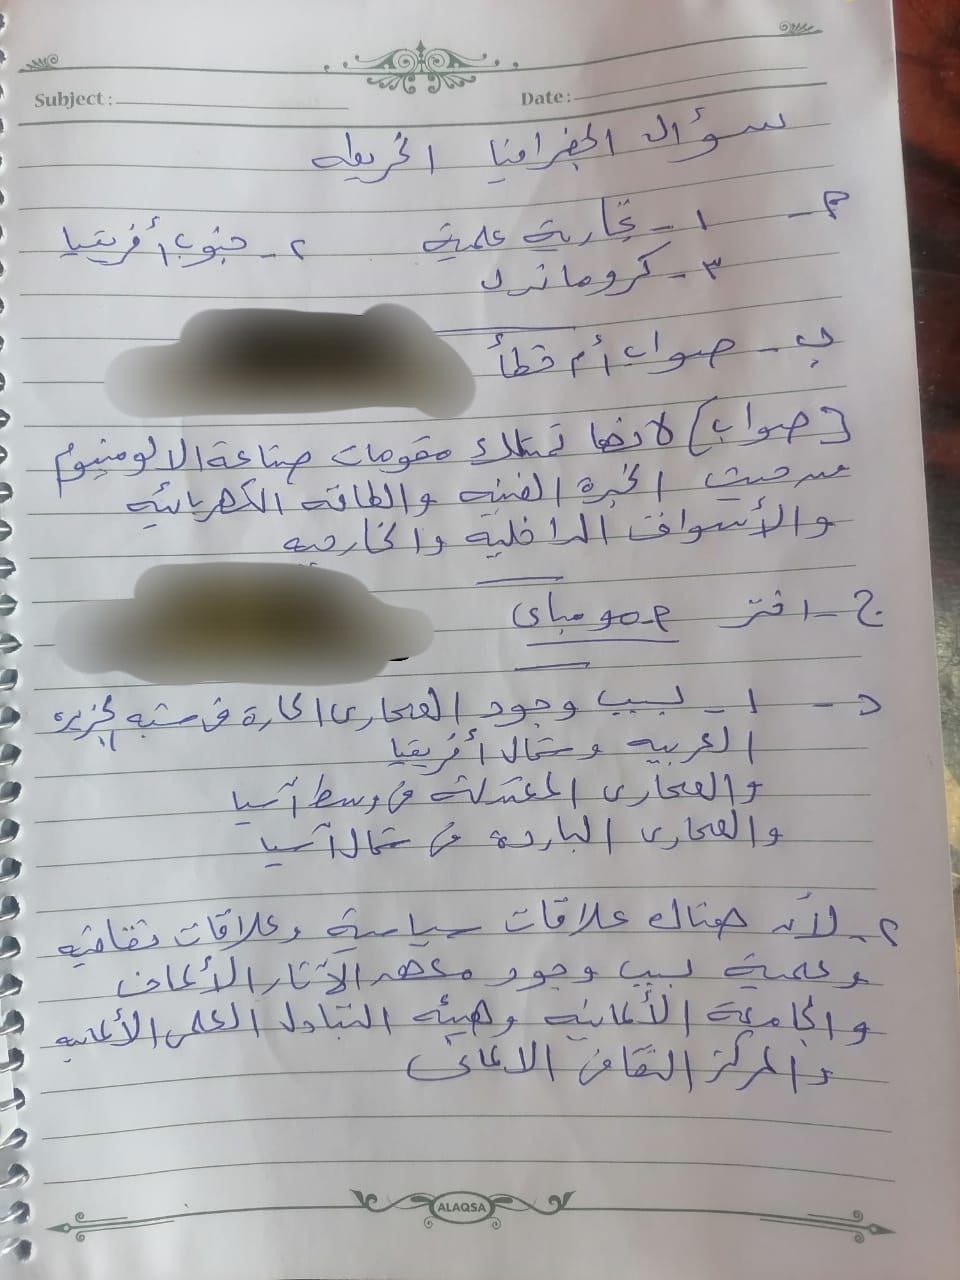 Subject: Date:
سؤال الجغرافيا الخريطه
أ- ١- تجارية علمية ٢- جنوب أفريقيا
٣- كروماندل
ب- صواب أم خطأ
(صواب) لانها تمتلك مقومات صناعة الالومنيوم
من حيث الخبرة الفنيه والطاقه الكهربائيه
والأسواق الداخليه والخارجيه
ج- اختر مومباى
د- ١- بسبب وجود الصحارى الحارة فى شبه الجزيره
العربيه وشمال أفريقيا
والصحارى المعتدلة فى وسط آسيا
والصحارى الباردة فى شمال آسيا
٢- لأنه هناك علاقات سياسية وعلاقات ثقافيه
وعلمية بسبب وجود معهد الآثار الألمانى
والجامعة الألمانيه وهيئه التبادل العلمى الألمانيه
والمركز الثقافى الالمانى
ALAQSA